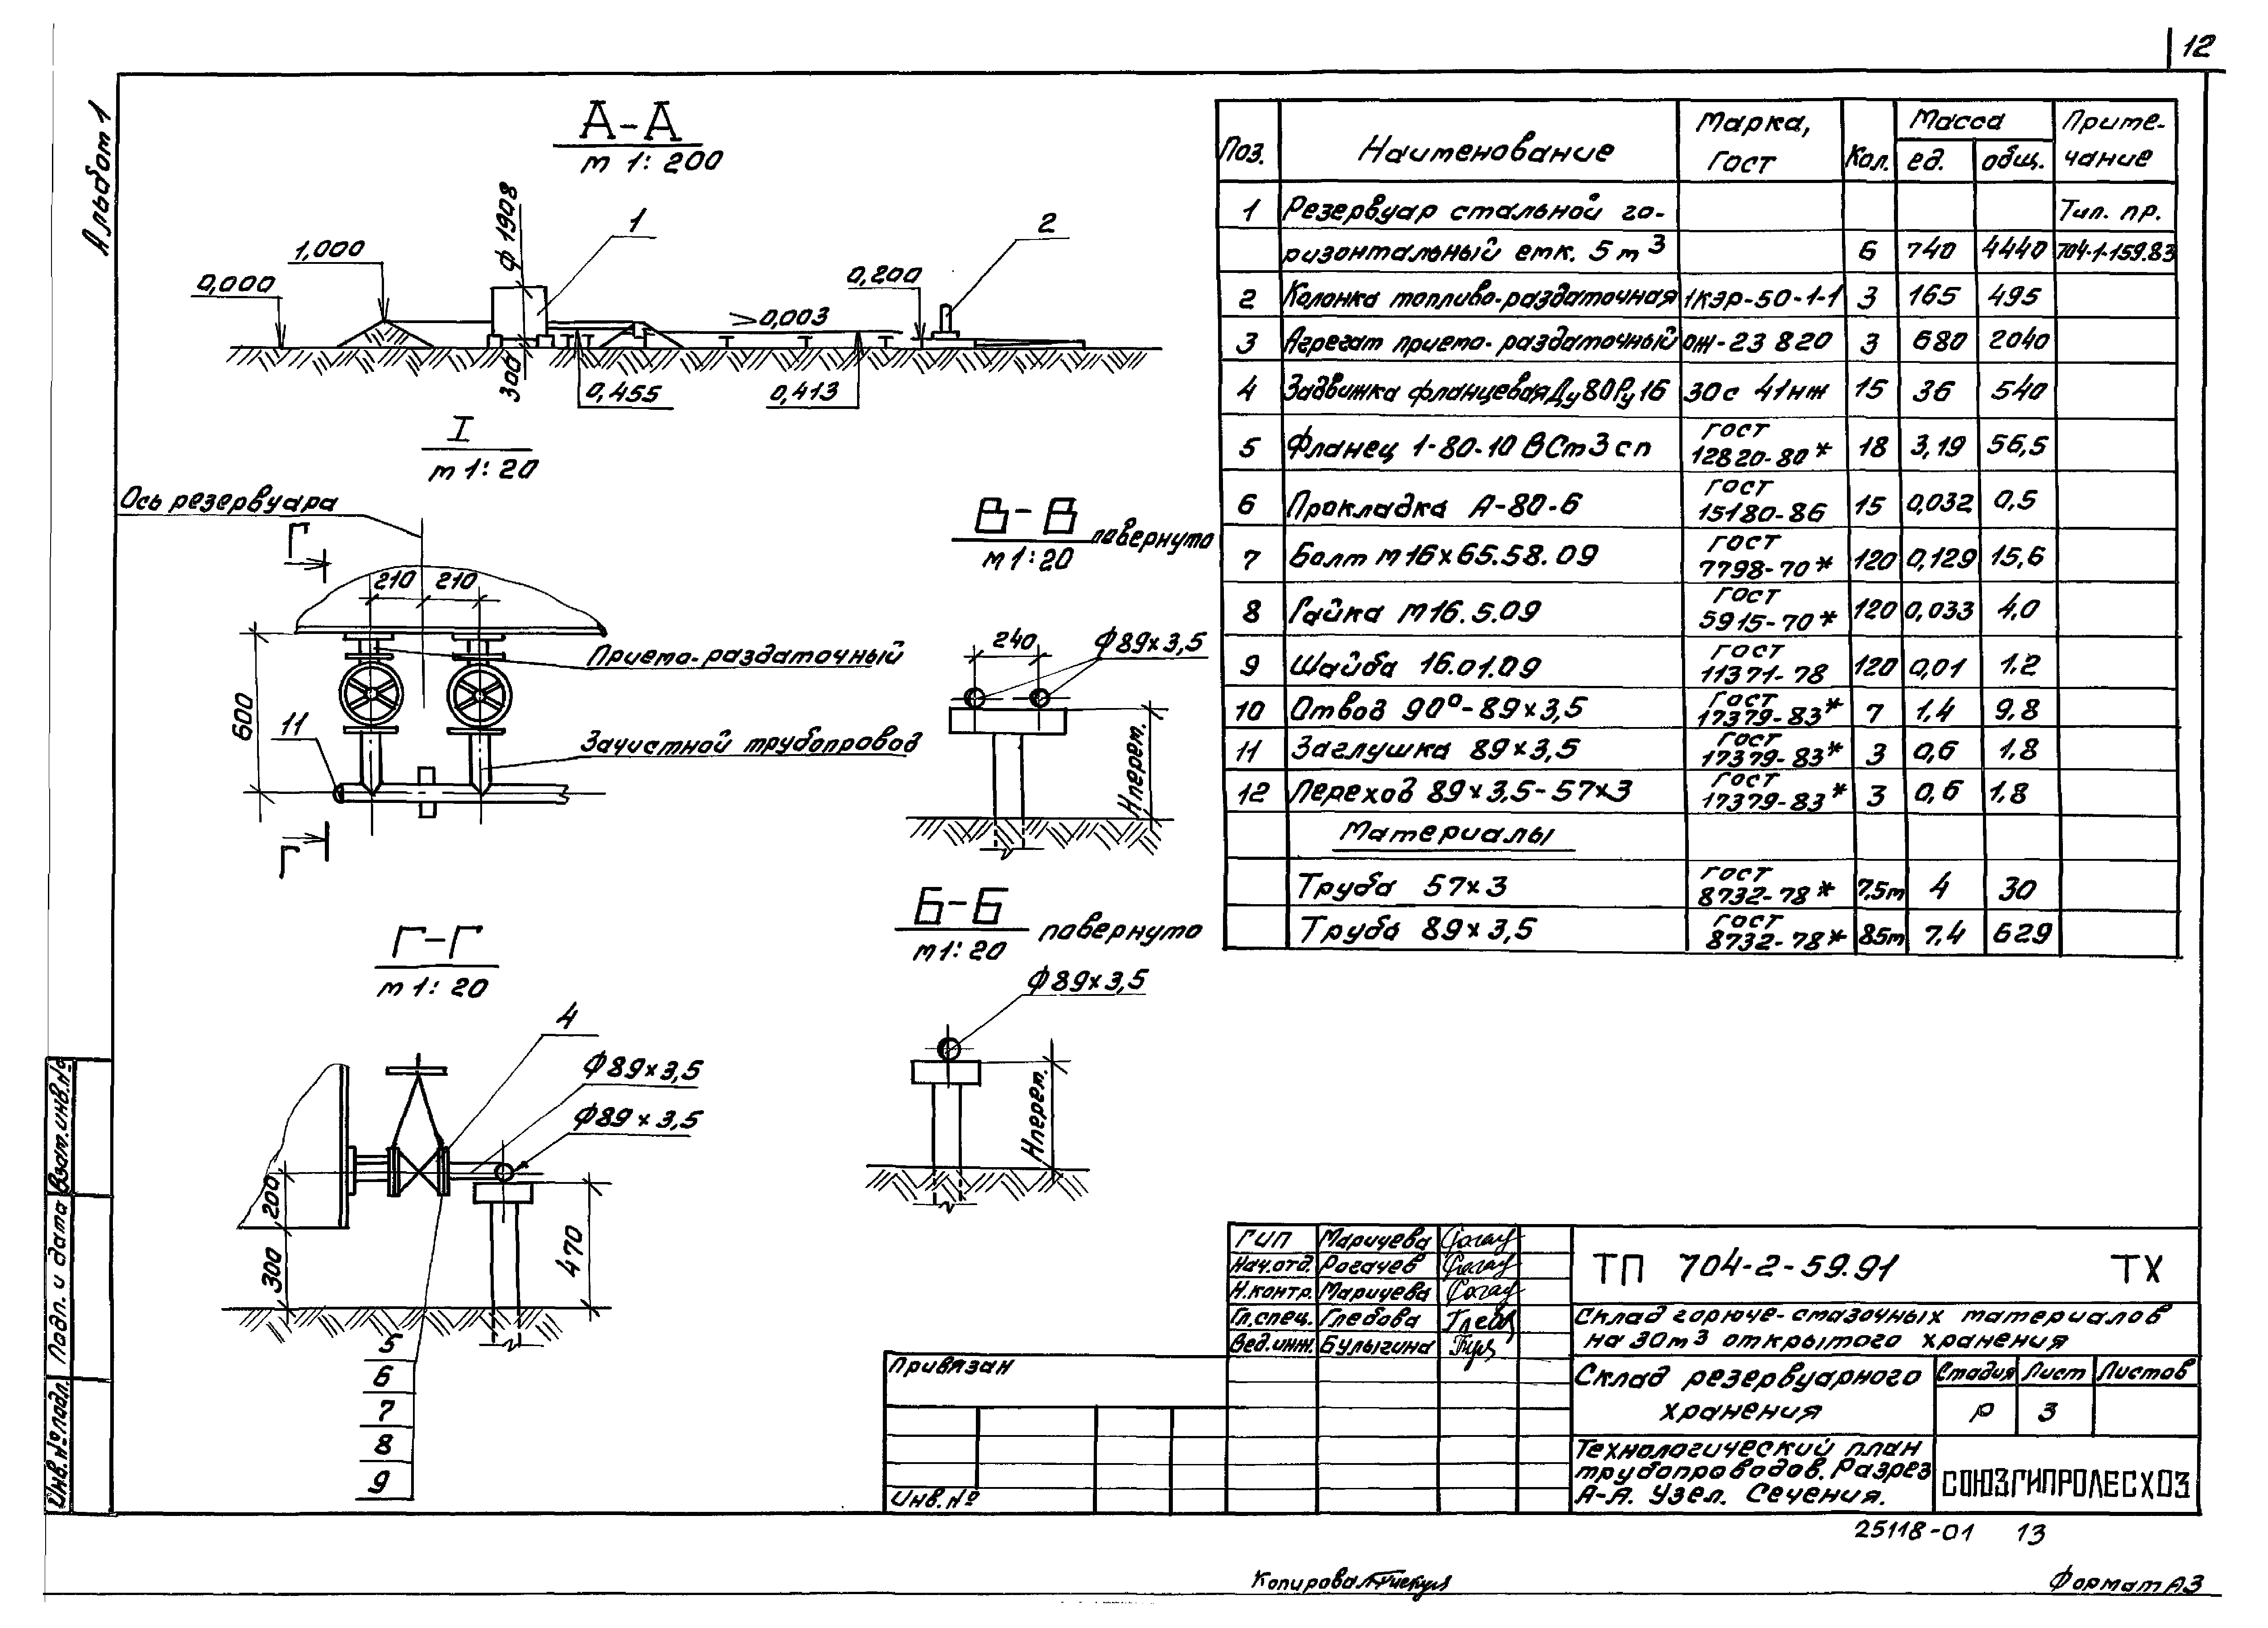 12
Альбом 1
А-А
м 1:200
1,000
0,000
ф 1908
1
0,003
0,200
2
300
0,455
0,413
I
м 1:20
Ось резервуара
Г
210 210
Приемо-раздаточный
600
11
Зачистной трубопровод
Г
В-В повернуто
м 1:20
240
ф89×3,5
Нперем.
Б-Б повернуто
м 1:20
ф89×3,5
Нперем.
Г-Г
м 1:20
4
ф89×3,5
ф89×3,5
200
300
470
5
6
7
8
9
Поз. Наименование Марка, ГОСТ Кол. Масса ед. общ. Приме-чание
1 Резервуар стальной го- Тип. пр.
ризонтальный емк. 5м³ 6 740 4440 704-1-159.83
2 Колонка топливо-раздаточная 1КЭР-50-1-1 3 165 495
3 Агрегат приемо-раздаточный ОЖ-23 820 3 680 2040
4 Задвижка фланцевая Ду80Ру16 30с 41нж 15 36 540
5 Фланец 1-80-10 ВСт3сп ГОСТ 12820-80* 18 3,19 56,5
6 Прокладка А-80-6 ГОСТ 15180-86 15 0,032 0,5
7 Болт М16×65.58.09 ГОСТ 7798-70* 120 0,129 15,6
8 Гайка М16.5.09 ГОСТ 5915-70* 120 0,033 4,0
9 Шайба 16.01.09 ГОСТ 11371-78 120 0,01 1,2
10 Отвод 90°-89×3,5 ГОСТ 17379-83* 7 1,4 9,8
11 Заглушка 89×3,5 ГОСТ 17379-83* 3 0,6 1,8
12 Переход 89×3,5-57×3 ГОСТ 17379-83* 3 0,6 1,8
Материалы
Труба 57×3 ГОСТ 8732-78* 7,5м 4 30
Труба 89×3,5 ГОСТ 8732-78* 85м 7,4 629
Взам.инв.№
Подп. и дата
Инв.№подл.
Привязан
Инв.№
ГИП Маричева
Нач.отд. Рогачев
Н.контр. Маричева
Гл.спец. Глебова
Вед.инж. Булыгина
ТП 704-2-59.91 ТХ
Склад горюче-смазочных материалов
на 30м³ открытого хранения
Склад резервуарного
хранения
Стадия Лист Листов
Р 3
Технологический план
трубопроводов. Разрез
А-А. Узел. Сечения.
СОЮЗГИПРОЛЕСХОЗ
25118-01 13
Копировал
Формат А3